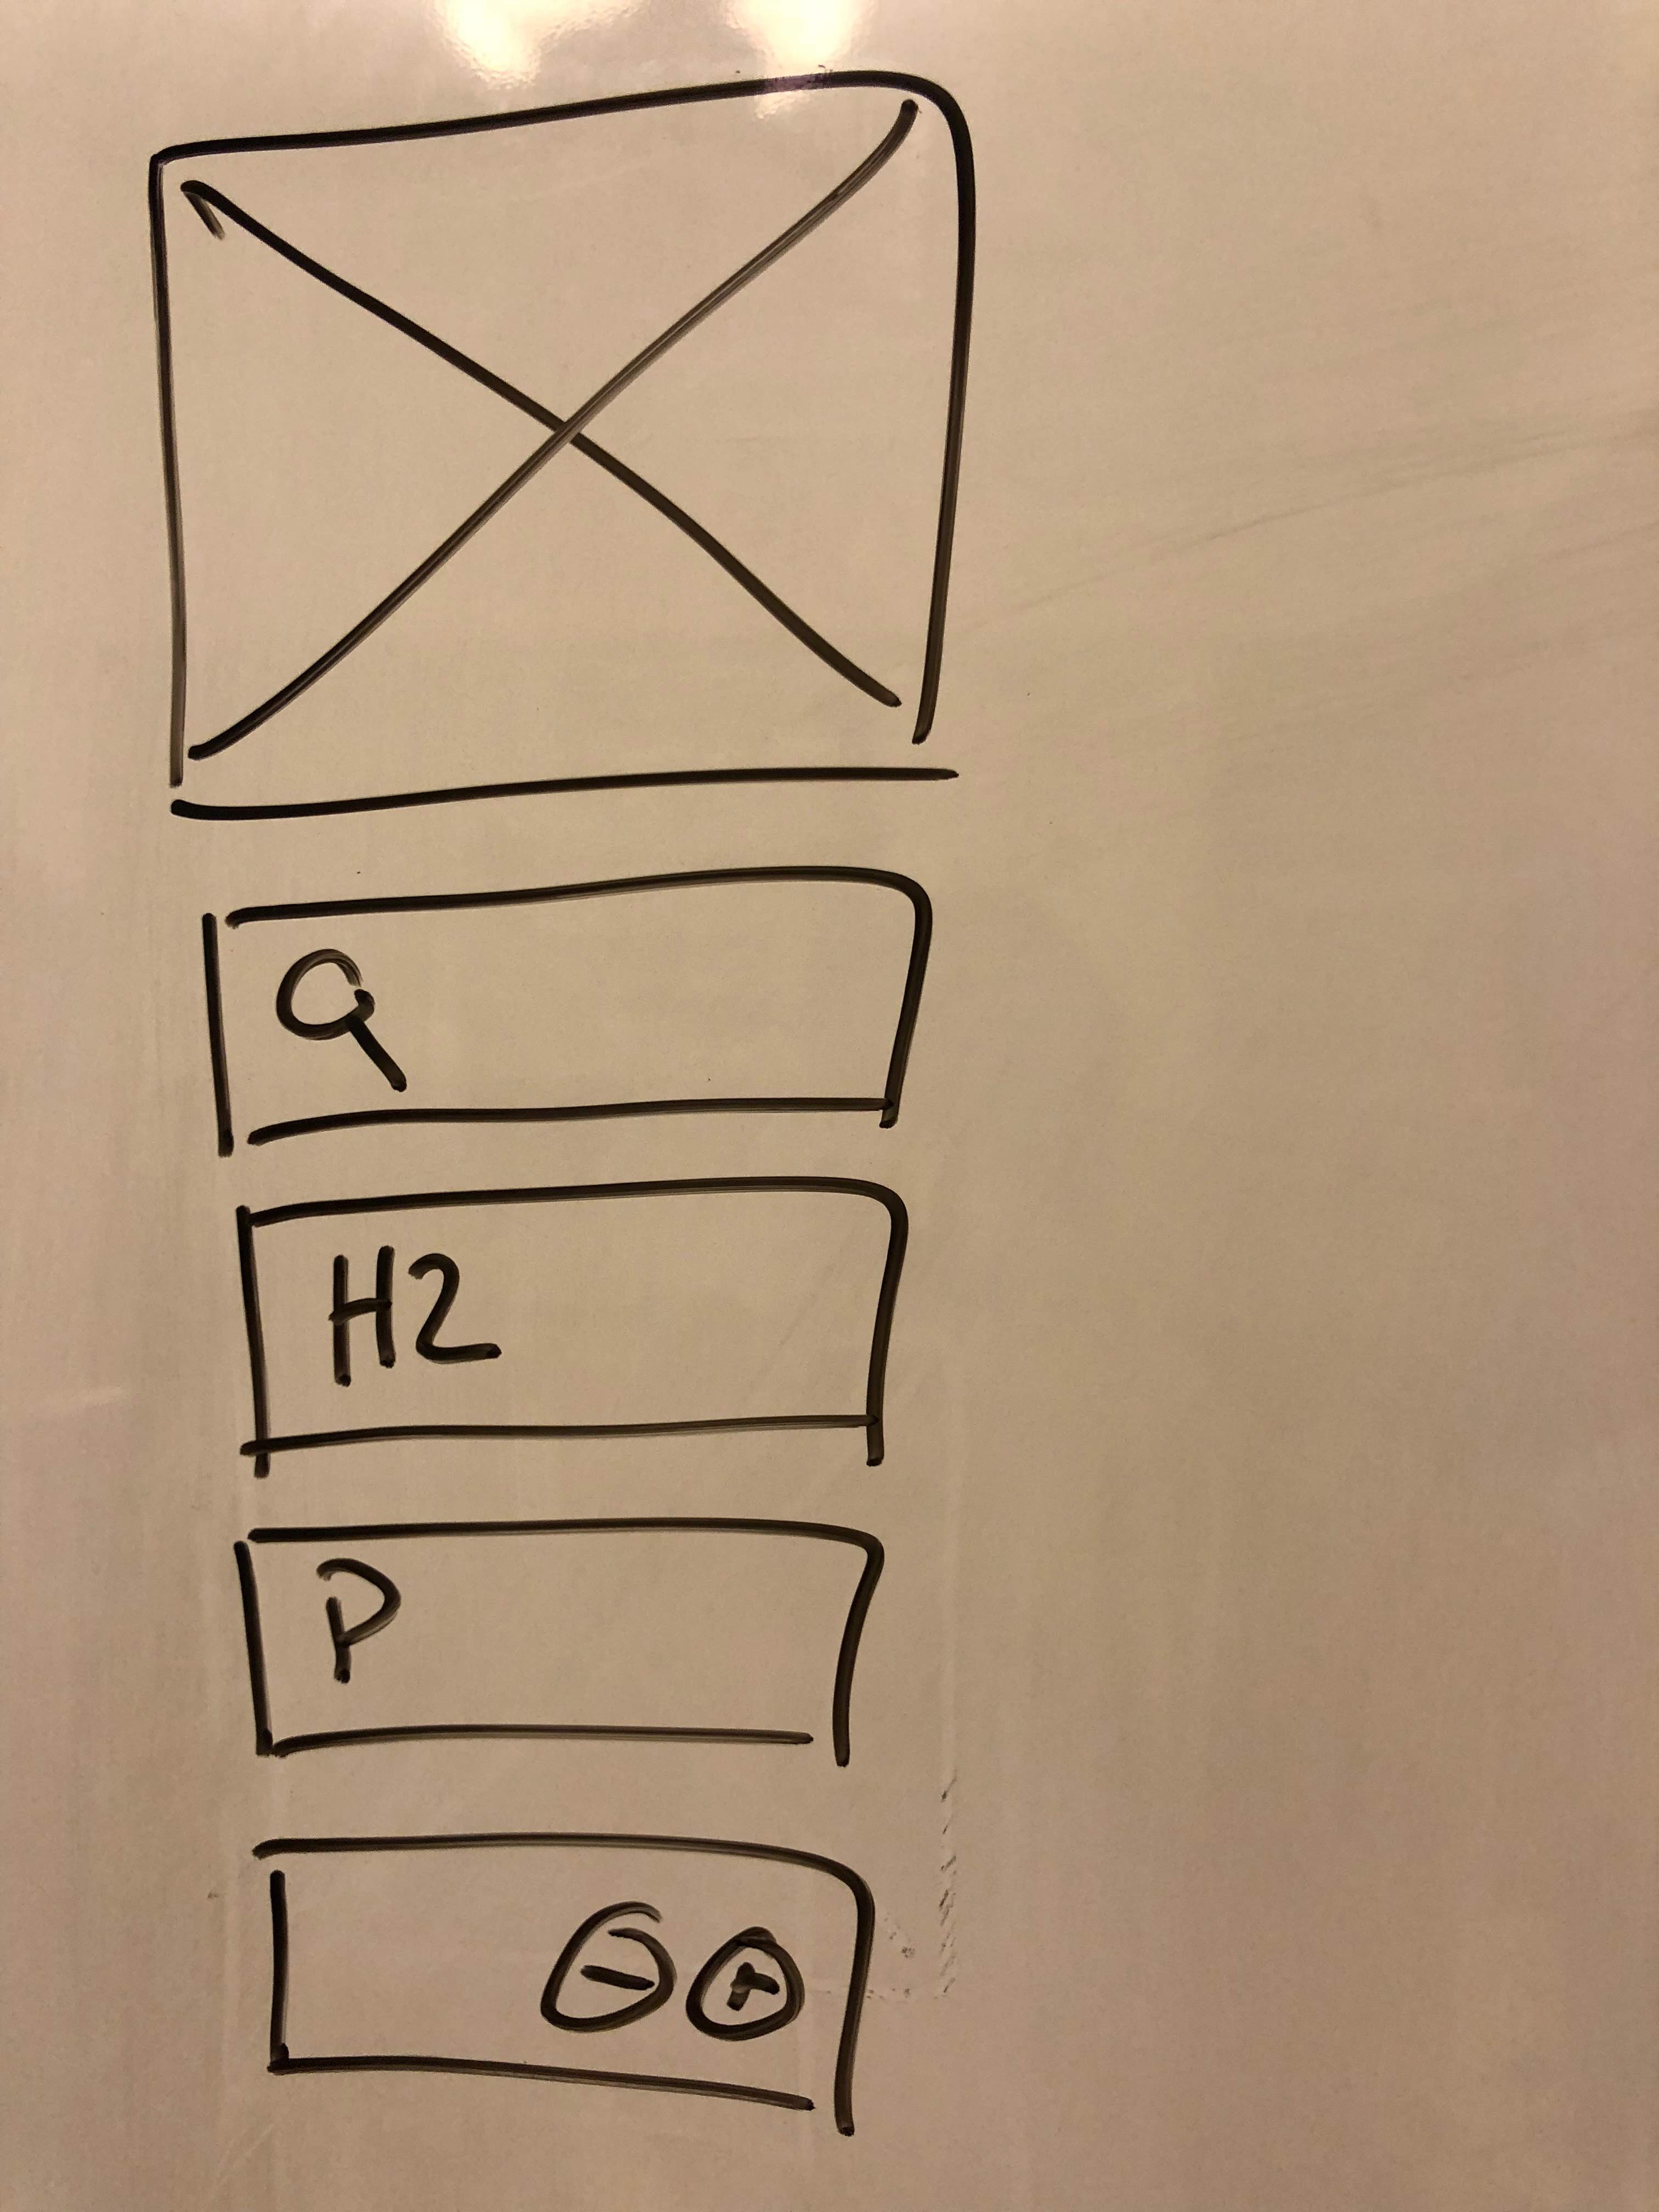 H2
P
- +